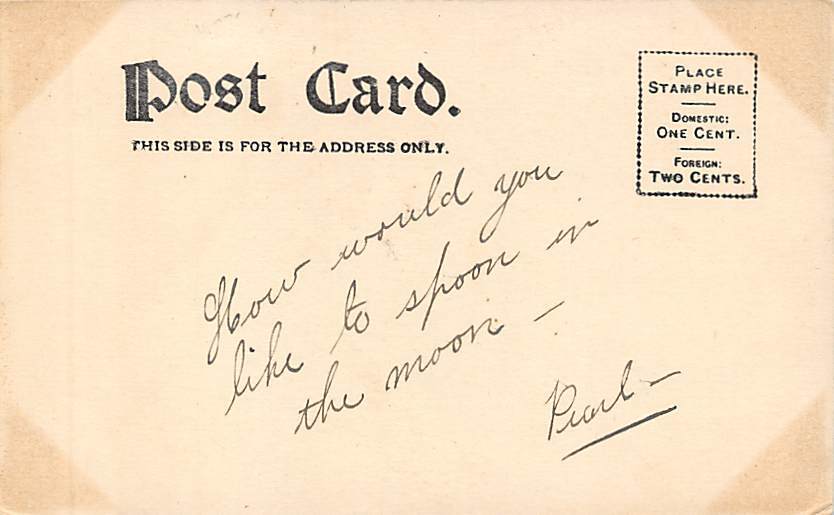 Post Card.
THIS SIDE IS FOR THE ADDRESS ONLY.
PLACE
STAMP HERE.
DOMESTIC:
ONE CENT.
FOREIGN:
TWO CENTS.
How would you
like to spoon in
the moon –
Pearl –